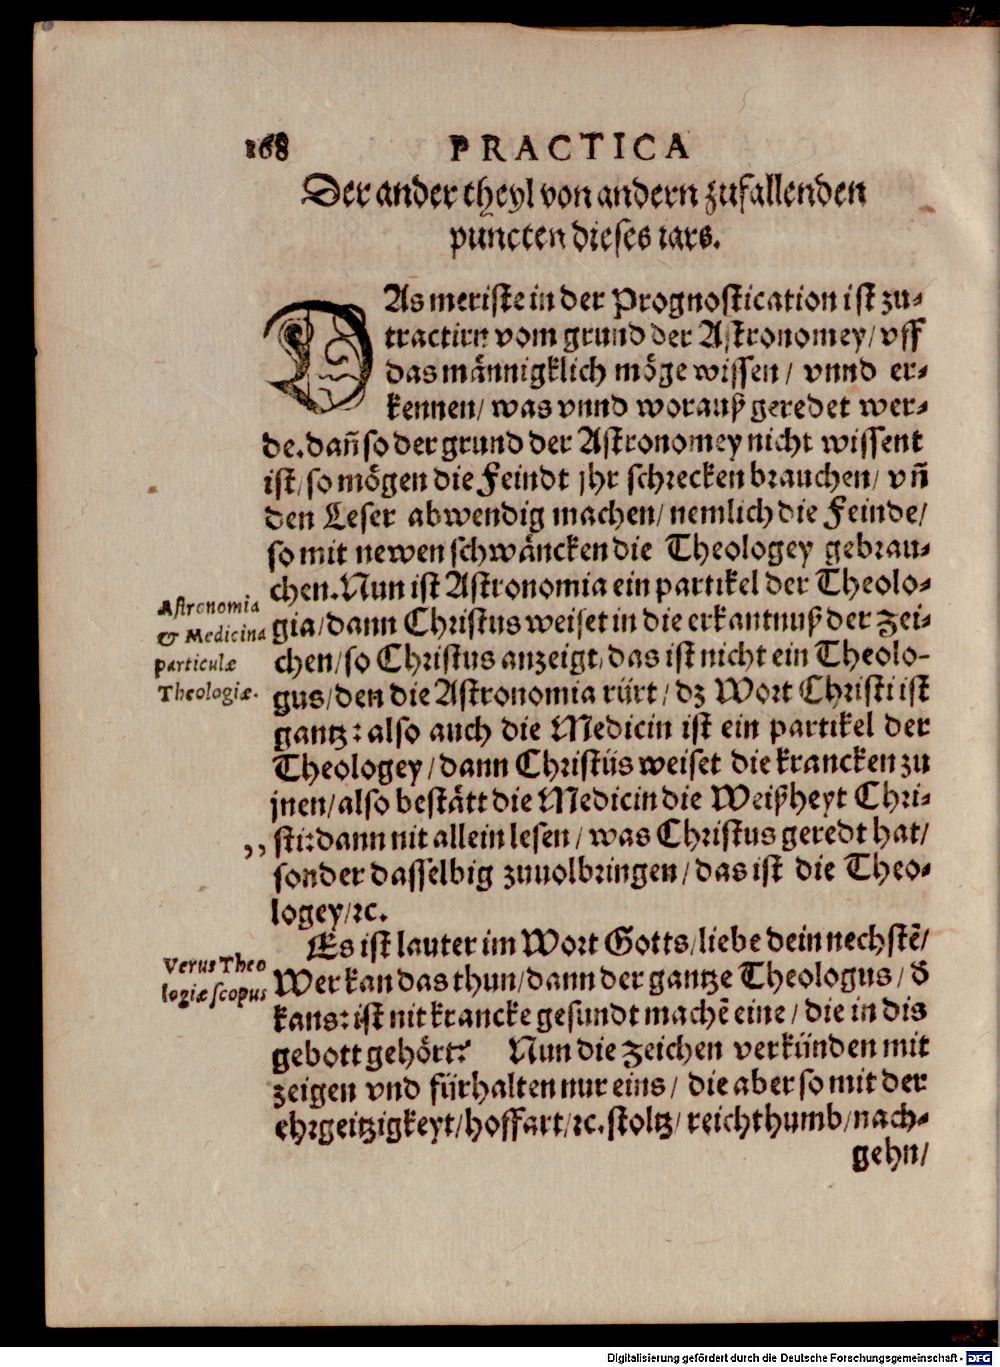 168 PRACTICA
Der ander theyl von andern zufallenden
puncten dieses iars.
DAs meriste in der Prognostication ist zu⸗
tractirn vom grund der Astronomey/ vff
das männigklich möge wissen/ vnnd er⸗
kennen/ was vnnd worauß geredet wer⸗
de. dañ so der grund der Astronomey nicht wissent
ist/ so mögen die Feindt jhr schrecken brauchen/ vñ
den Leser abwendig machen/ nemlich die Feinde/
so mit newen schwäncken die Theologey gebrau⸗
chen. Nun ist Astronomia ein partikel der Theolo⸗
gia/ dann Christus weiset in die erkantnuß der Zei⸗
chen/ so Christus anzeigt/ das ist nicht ein Theolo-
gus/ den die Astronomia rürt/ dz Wort Christi ist
gantz: also auch die Medicin ist ein partikel der
Theologey/ dann Christus weiset die krancken zu
jnen/ also bestätt die Medicin die Weißheyt Chri⸗
,, sti: dann nit allein lesen/ was Christus geredt hat/
sonder dasselbig zuuolbringen/ das ist die Theo⸗
logey/ ꝛc.
Es ist lauter im Wort Gotts/ liebe dein nechstẽ/
Wer kan das thun/ dann der gantze Theologus/ d̃
kans: ist nit krancke gesundt machẽ eine/ die in dis
gebott gehört? Nun die Zeichen verkünden mit
zeigen vnd fürhalten nur eins/ die aber so mit der
ehrgeitzigkeyt/ hoffart/ ꝛc. stoltz/ reichthumb/ nach⸗
gehn/
Astronomia
& Medicina
particulæ
Theologiæ.
Verus Theo
logiæ scopus
Digitalisierung gefördert durch die Deutsche Forschungsgemeinschaft - DFG